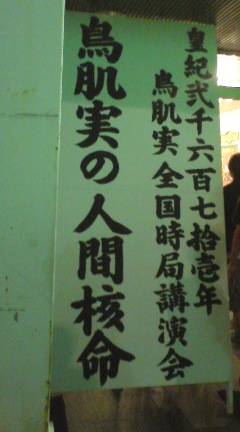 皇紀弐千六百七拾壱年
鳥肌実全国時局講演会
鳥肌実の人間核命